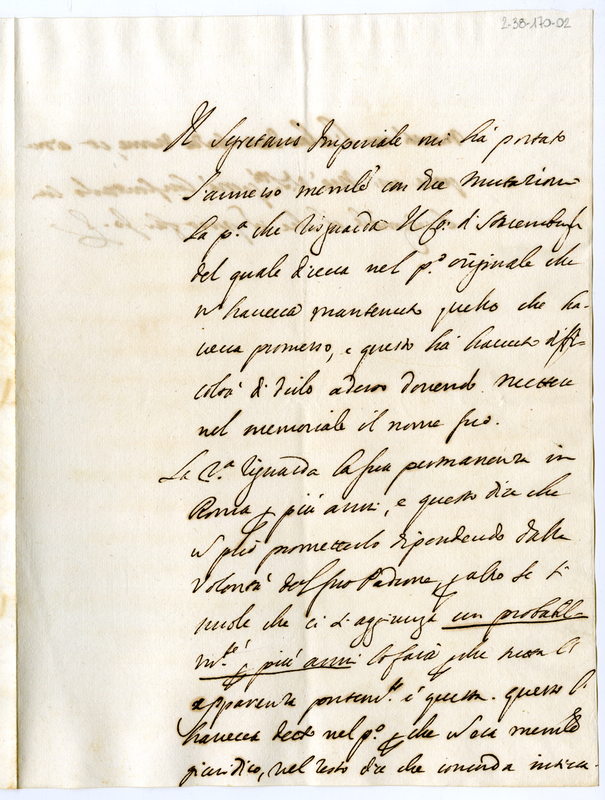 2-38-170-02
Il Segretario Imperiale mi hà portato
l'annesso memle con due mutazioni
La pa che risguarda Il Co: di
del quale diceva nel po originale che
n haveva mantenuto quello che ha-
veva promesso, e questo hà havuto diffi-
coltà di dirlo adesso dovendo mettere
nel memoriale il nome suo.
La 2.a riguarda la sua permanenza in
Roma p più anni, e questo dice che
n può prometterlo dipendendo dalla
volontà del suo Padrone, p altro se si
vuole che ci si aggiunga un probabil-
m.te p più anni lo farà p che tutta l'
apparenza presentem.te è questa. questo l'
haveva detto nel po p che n era memle
giuridico, nel resto dice che concorda intiera-